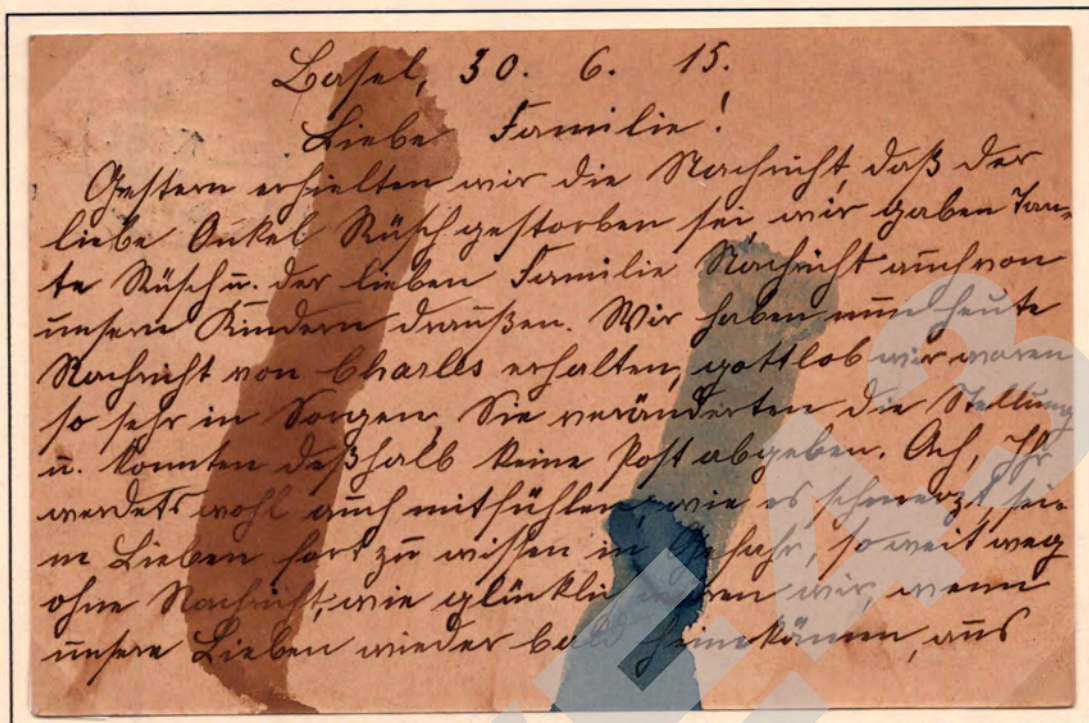 Basel, 30. 6. 15.
Liebe Familie!
Gestern erhielten wir die Nachricht, daß der
liebe Onkel Rüsch gestorben sei, wir gaben Tan-
te Rüsch u. der lieben Familie Nachricht auch von
unsern Kindern draußen. Wir haben nun heute
Nachricht von Charles erhalten, gottlob wir waren
so sehr in Sorgen, Sie veränderten die Stellung
u. konnten deßhalb keine Post abgeben. Ach, Ihr
werdets wohl auch mitfühlen, wie es schmerzt, sei-
ne Lieben fort zu wissen in Gefahr, so weit weg
ohne Nachricht, wie glücklich wären wir, wenn
unsere Lieben wieder bald heimkämen, aus